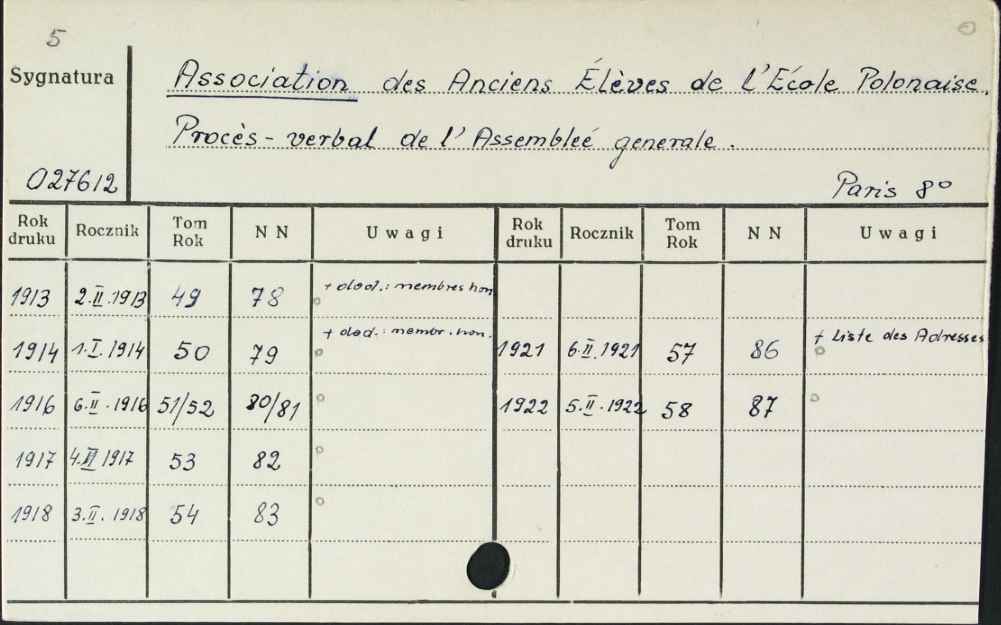 5
Sygnatura
Association des Anciens Élèves de l'École Polonaise.
Procès-verbal de l'Assembleé generale.
027612
Paris 8°
Rok druku Rocznik Tom Rok NN Uwagi Rok druku Rocznik Tom Rok NN Uwagi
1913 2.II.1913 49 78 + dod.: membres hon.
1914 1.I.1914 50 79 + dod.: membr. hon. 1921 6.II.1921 57 86 + Liste des Adresses
1916 6.II.1916 51/52 80/81 1922 5.II.1922 58 87
1917 1917 53 82
1918 3.II.1918 54 83